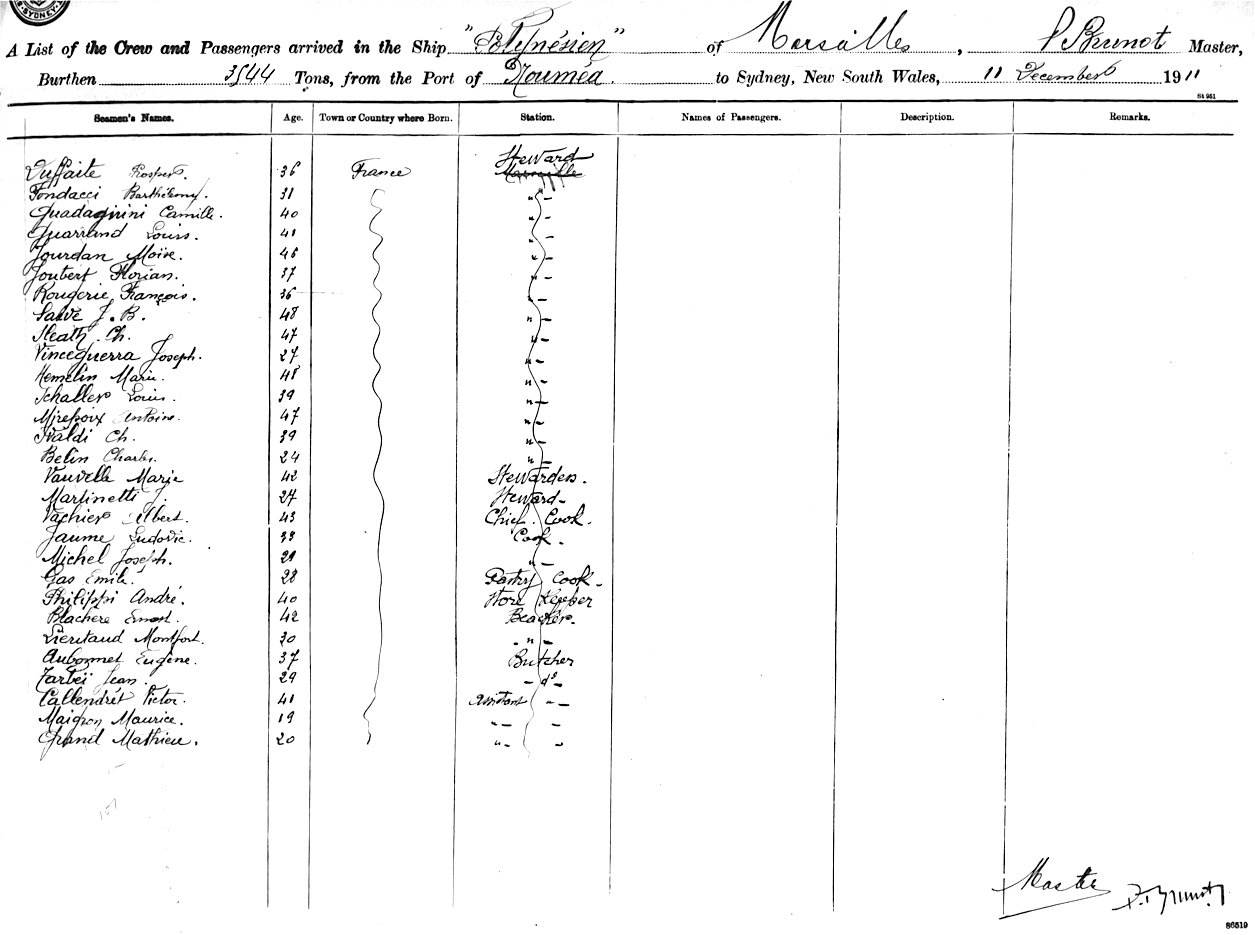 SYDNEY
A List of the Crew and Passengers arrived in the Ship "Polynésien" of Marseilles, P Brunot Master,
Burthen 3544 Tons, from the Port of Nouméa. to Sydney, New South Wales, 11 December 1911
St 951
Seamen's Names. Age. Town or Country where Born. Station. Names of Passengers. Description. Remarks.
Steward
Duffaite Prosper. 36 France Marseille
Fondacci Barthélemy. 31 " -
Guadagnini Camille. 40 " -
Guarrand Louis. 41 " -
Jourdan Moïse. 45 " -
Joubert Florian. 37 " -
Rougerie François. 36 " -
Salve J. B. 48 " -
Heath Ch. 47 " -
Vinceguerra Joseph. 27 " -
Hemelin Marie. 48 " -
Schaller Louis. 39 " -
Mirepoix Antoine. 47 " -
Naldi Ch. 39 " -
Belin Charles. 24 " -
Vauvelle Marie 42 Stewardess.
Martinetti J. 27 Steward -
Vachier Albert. 43 Chief Cook.
Jaume Ludovic. 33 Cook -
Michel Joseph. 29 " -
Gas Emile. 28 Pastry Cook -
Philippi André. 40 Store Keeper
Blachere Ernest. 42 Beacker -
Lieutaud Montfort. 30 - " -
Aubonnet Eugène. 37 Butcher
Tarbei Jean. 29 - do -
Callendrét Victor. 41 Assistant " -
Maigron Maurice. 19 " - -
Grand Mathieu. 20 " - -
157
Master P. Brunot
86519